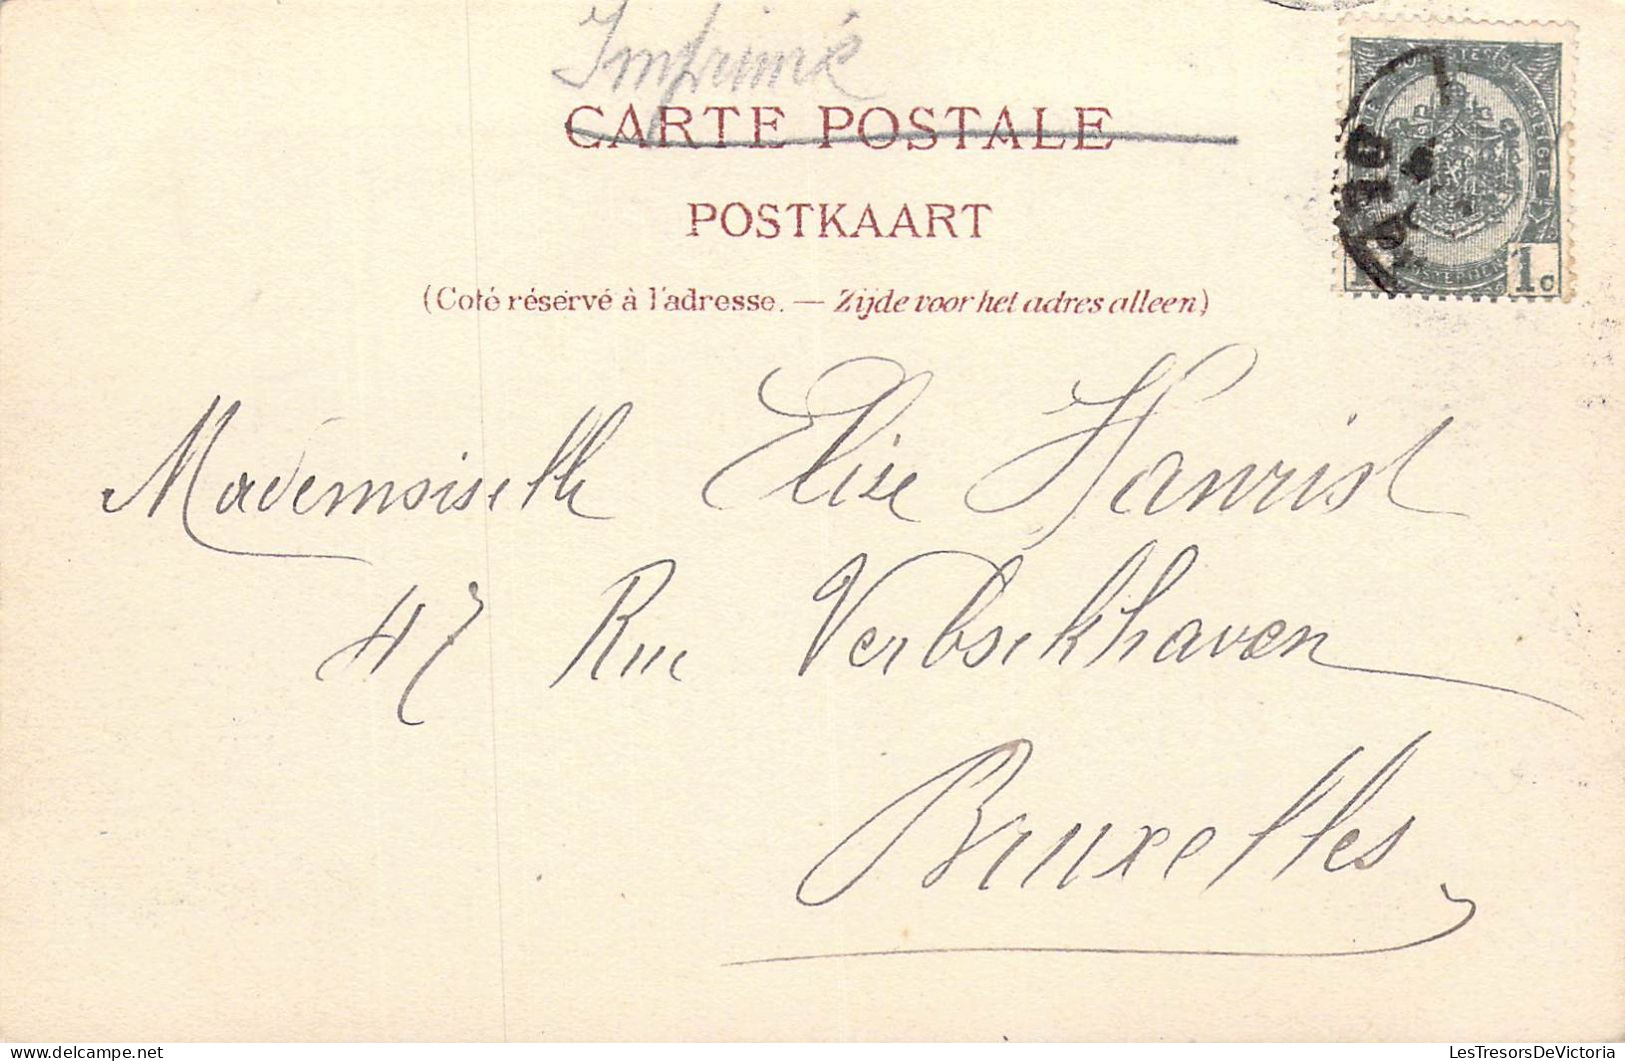 Imprimé
CARTE POSTALE
POSTKAART
(Coté réservé à l'adresse. — Zijde voor het adres alleen)
1c
Mademoiselle Elise Hanrist
47 Rue Verbockhaven
Bruxelles
LesTresorsDeVictoria